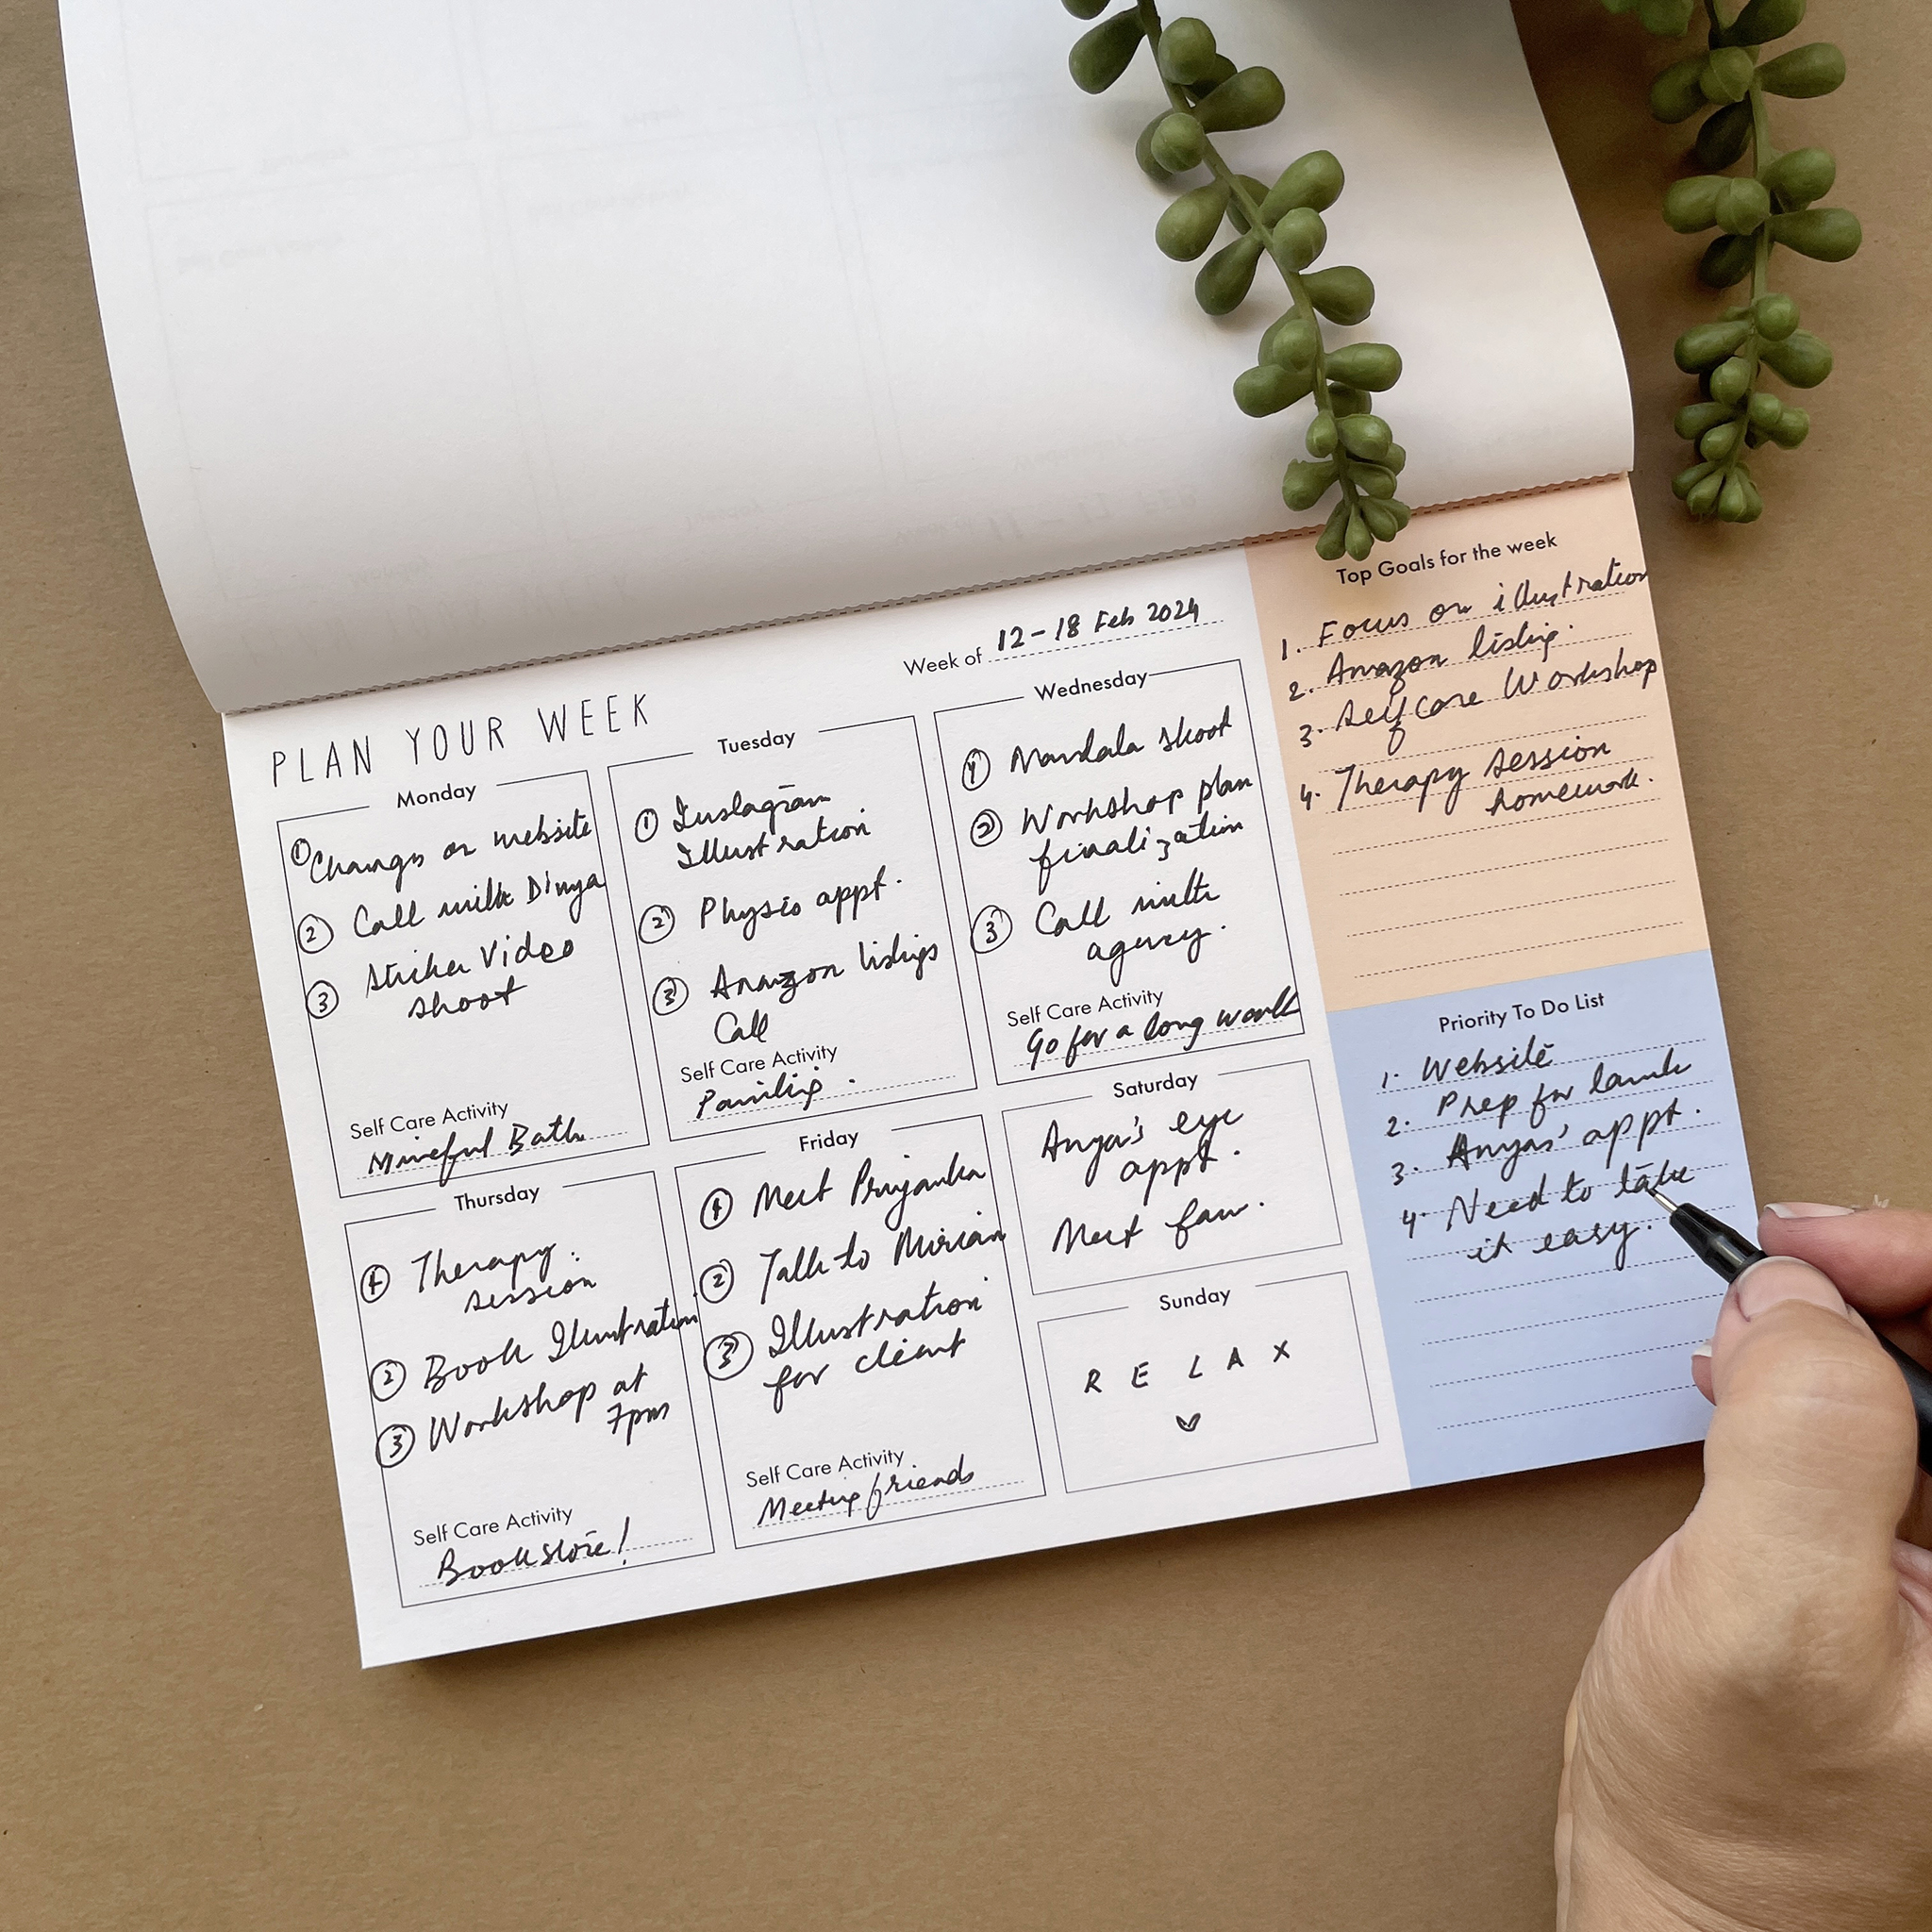 PLAN YOUR WEEK
Week of 12-18 Feb 2024
Monday
① Changes on website
② Call with Divya
③ Sticker Video
shoot
Self Care Activity
Mindful Bath
Tuesday
① Instagram
Illustration
② Physio appt.
③ Amazon listings
Call
Self Care Activity
Painting.
Wednesday
① Mandala shoot
② Workshop plan
finalization
③ Call with
agency.
Self Care Activity
Go for a long walk
Thursday
① Therapy
session
② Book Illustration
③ Workshop at
7pm
Self Care Activity
Bookstore!
Friday
① Meet Priyanka
② Talk to Miriam
③ Illustration
for client
Self Care Activity
Meeting friends
Saturday
Anya's eye
appt.
Meet fam.
Sunday
RELAX
Top Goals for the week
1. Focus on illustration
2. Amazon listing.
3. Selfcare Workshop
4. Therapy session
homework.
Priority To Do List
1. Website
2. Prep for
3. Anyas' appt.
4. Need to take
it easy.